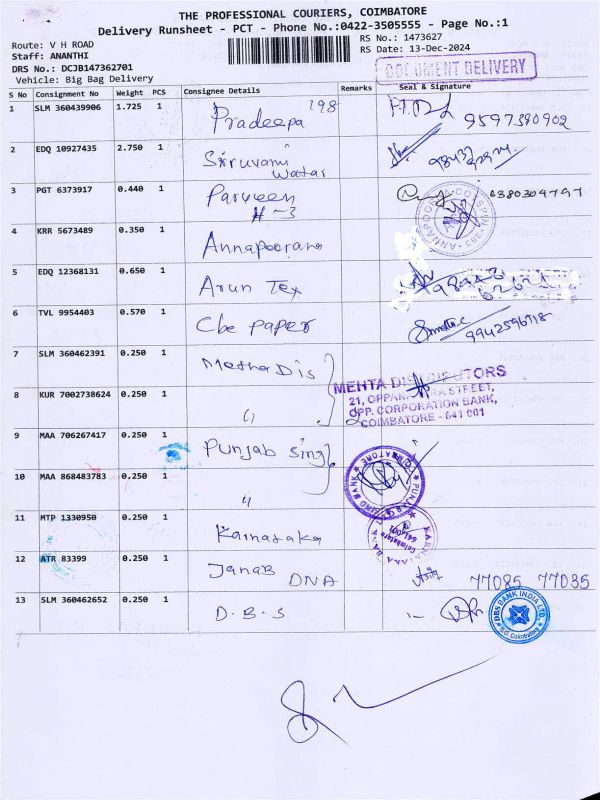 THE PROFESSIONAL COURIERS, COIMBATORE
Delivery Runsheet - PCT - Phone No.:0422-3505555 - Page No.:1
Route: V H ROAD
RS No.: 1473627
Staff: ANANTHI
RS Date: 13-Dec-2024
DRS No.: DCJB147362701
DOCUMENT DELIVERY
Vehicle: Big Bag Delivery
S No Consignment No Weight PCS Consignee Details Remarks Seal & Signature
1 SLM 360439906 1.725 1 Pradeepa 198 9597390902
2 EDQ 10927435 2.750 1 Siruvani
Watar
3 PGT 6373917 0.440 1 Parveen 6380304797
H-3
4 KRR 5673489 0.350 1 Annapoorana
5 EDQ 12368131 0.650 1 Arun Tex
6 TVL 9954403 0.570 1 Cbe paper
7 SLM 360462391 0.250 1 Metha Dis
MEHTA DISTRIBUTORS
STREET,
OPP. CORPORATION BANK,
COIMBATORE - 641 001
8 KUR 7002738624 0.250 1 "
9 MAA 706267417 0.250 1 Punjab sing
10 MAA 868483783 0.250 1 "
PUNJAB & SIND BANK
COIMBATORE
11 MTP 1330950 0.250 1 Karnataka
KARNATAKA BANK
Coimbatore
12 ATR 83399 0.250 1 Janab DNA 77085 77035
13 SLM 360462652 0.250 1 D.B.S
DBS BANK INDIA LTD.
R.O. Coimbatore